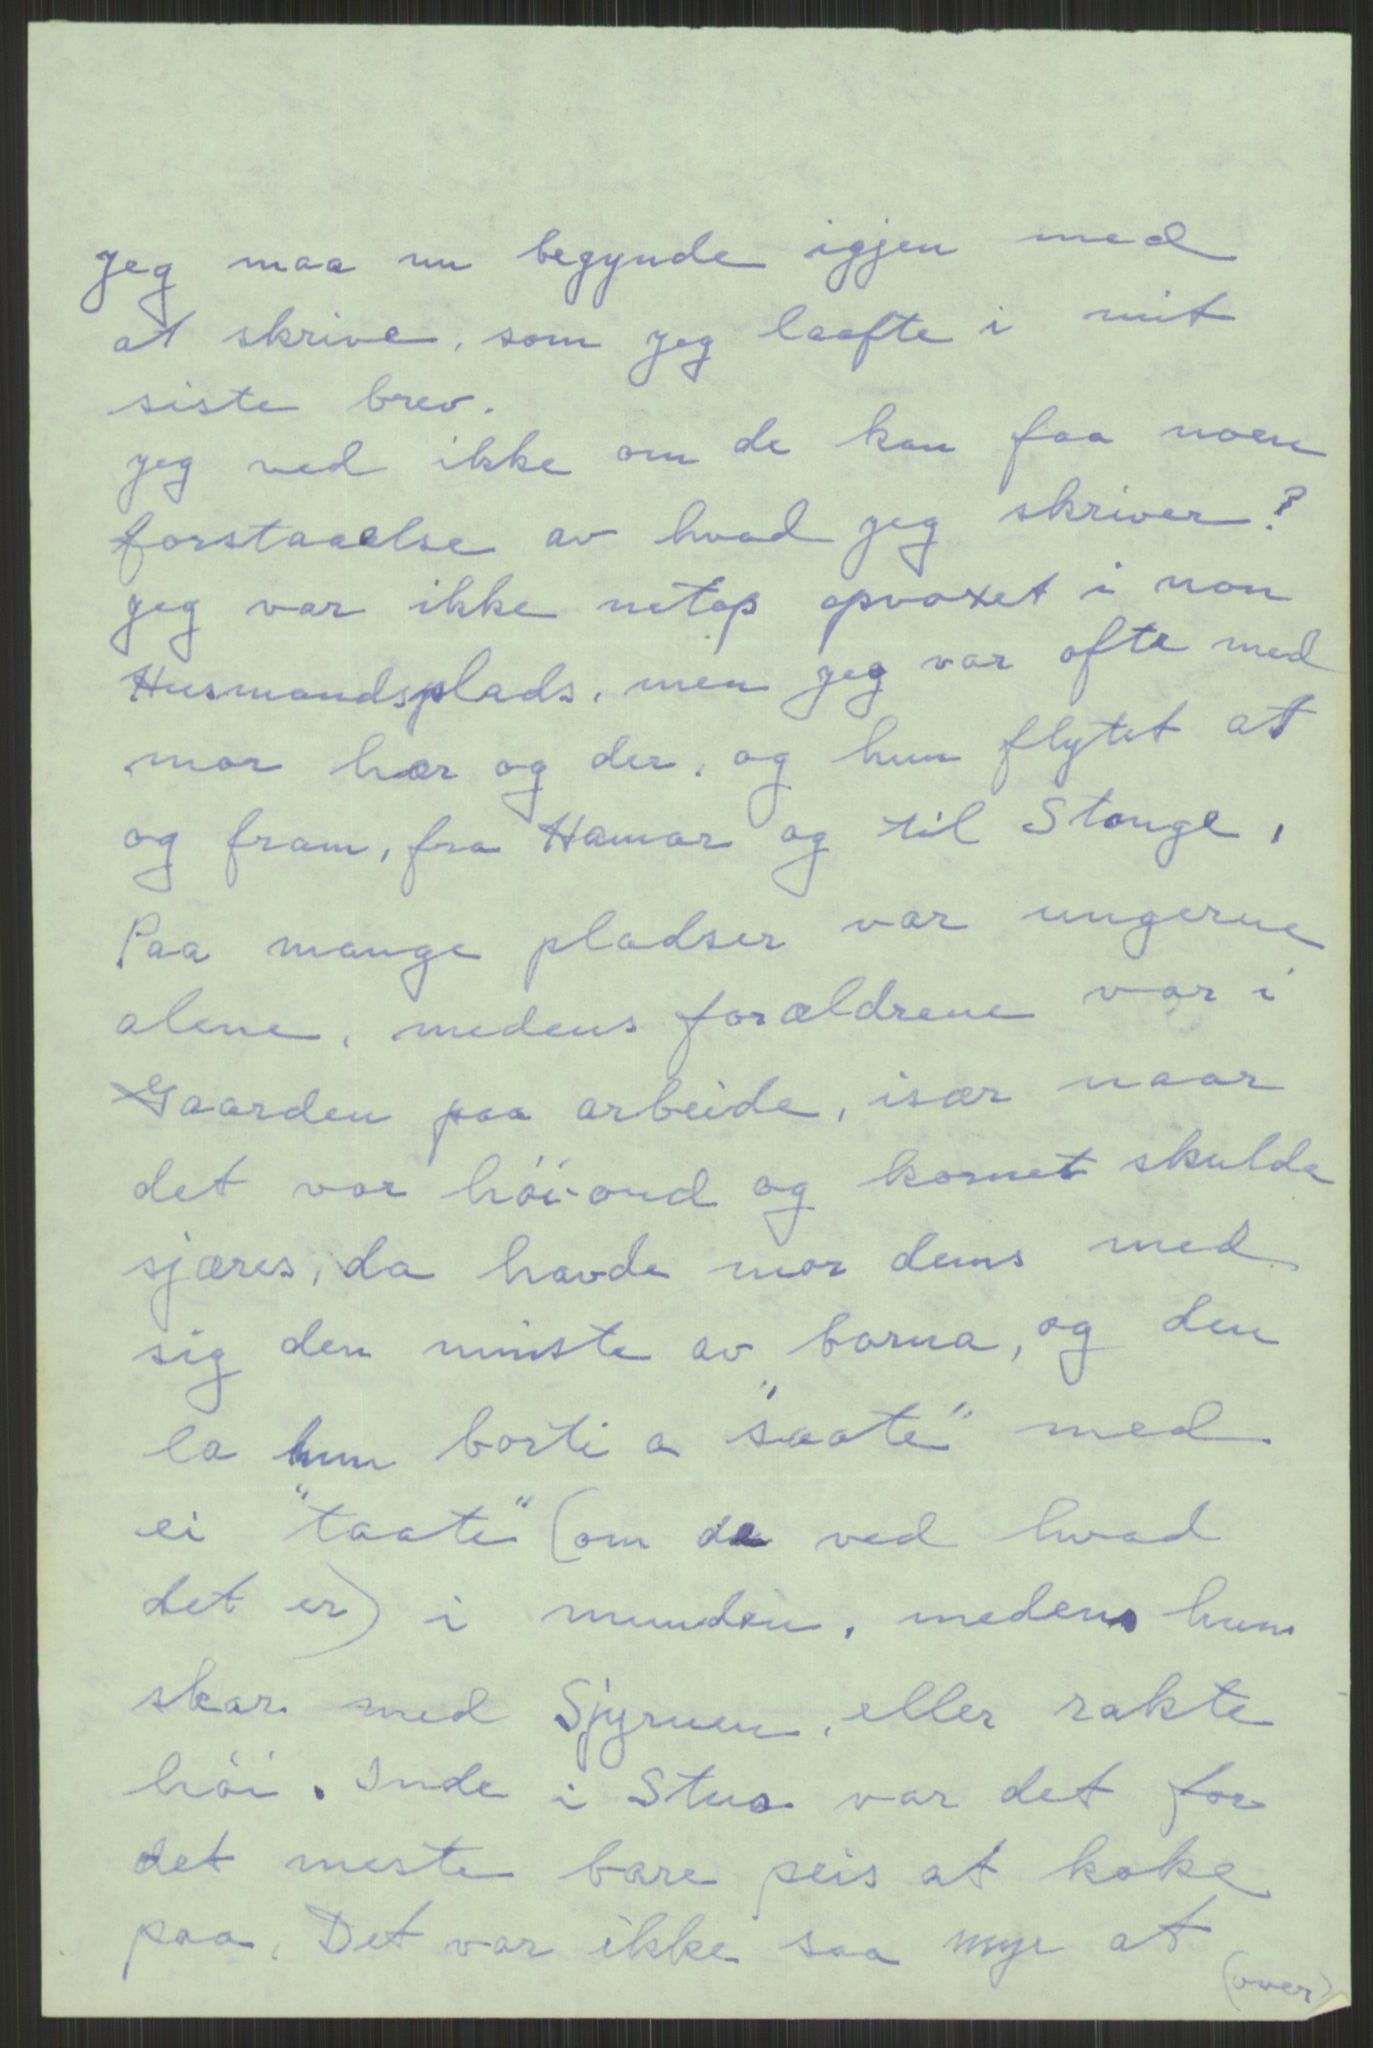 Jeg maa nu begynde igjen med
at skrive, som jeg laafte i mit
siste brev.
jeg ved ikke om de kan faa noen
forstaaelse av hvad jeg skriver?
jeg var ikke netop opvoxet i non
Husmandsplads, men jeg var ofte med
mor hær og der, og hun flytet at
og fram, fra Hamar og til Stange,
Paa mange pladser var ungerne
alene, medens forældrene var i
Gaarden paa arbeide, især naar
det var höi-ond og kornet skulde
sjæres, da havde mor dems med
sig den minste av borna, og den
la hun borti a "saate" med
ei "taate" (om de ved hvad
det er) i munden, medens hun
skar med Sjyruen, eller rakte
höi. Inde i Stua var det for
det meste bare peis at koke
paa. Det var ikke saa mye at
(over)